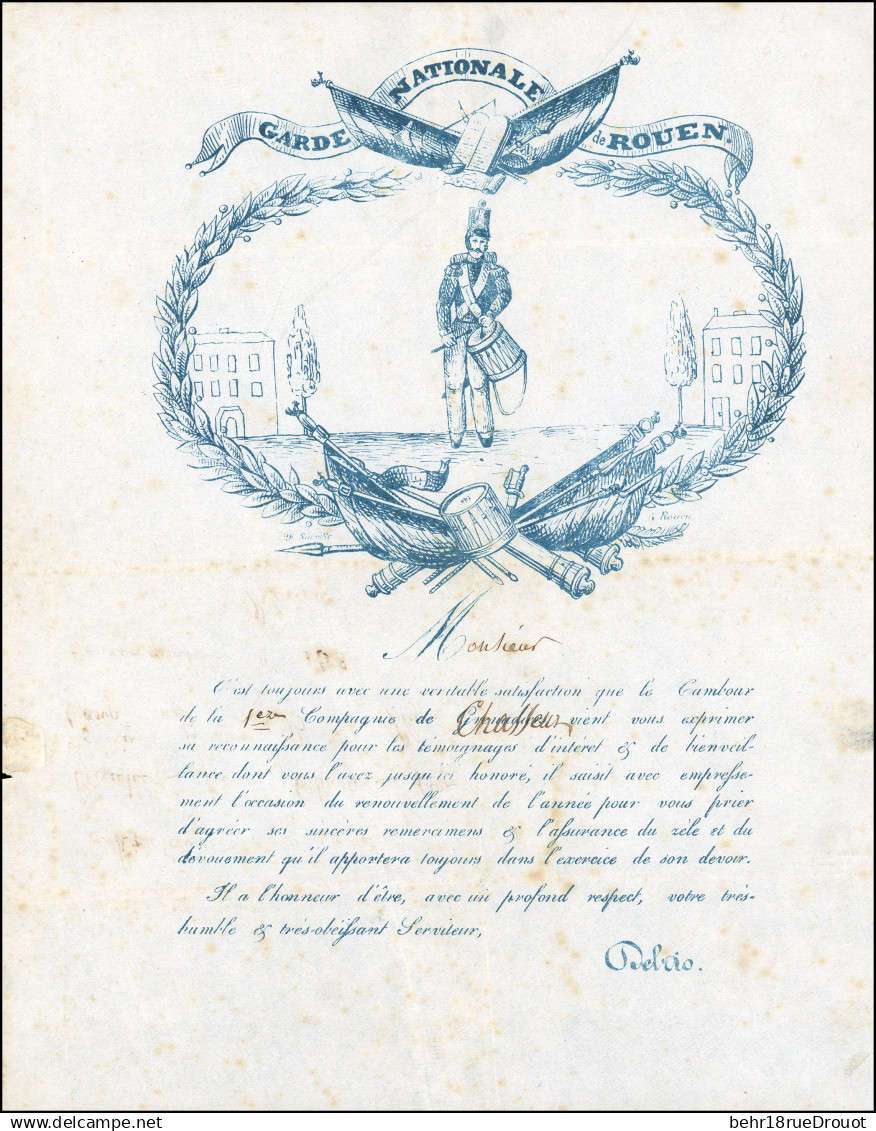 GARDE NATIONALE de ROUEN
à Rouen
Monsieur
C'est toujours avec une veritable satisfaction que le Tambour
de la 1ere Compagnie de Chasseurs vient vous exprimer
sa reconnaissance pour les témoignages d'intéret & de bienveil-
lance dont vous l'avez jusqu'ici honoré, il saisit avec empresse-
ment l'occasion du renouvellement de l'année pour vous prier
d'agréer ses sincères remercimens & l'assurance du zèle et du
dévouement qu'il apportera toujours dans l'exercice de son devoir.
Il a l'honneur d'être, avec un profond respect, votre trés-
humble & trés-obéissant Serviteur,
www.delcampe.net
behr18rueDrouot